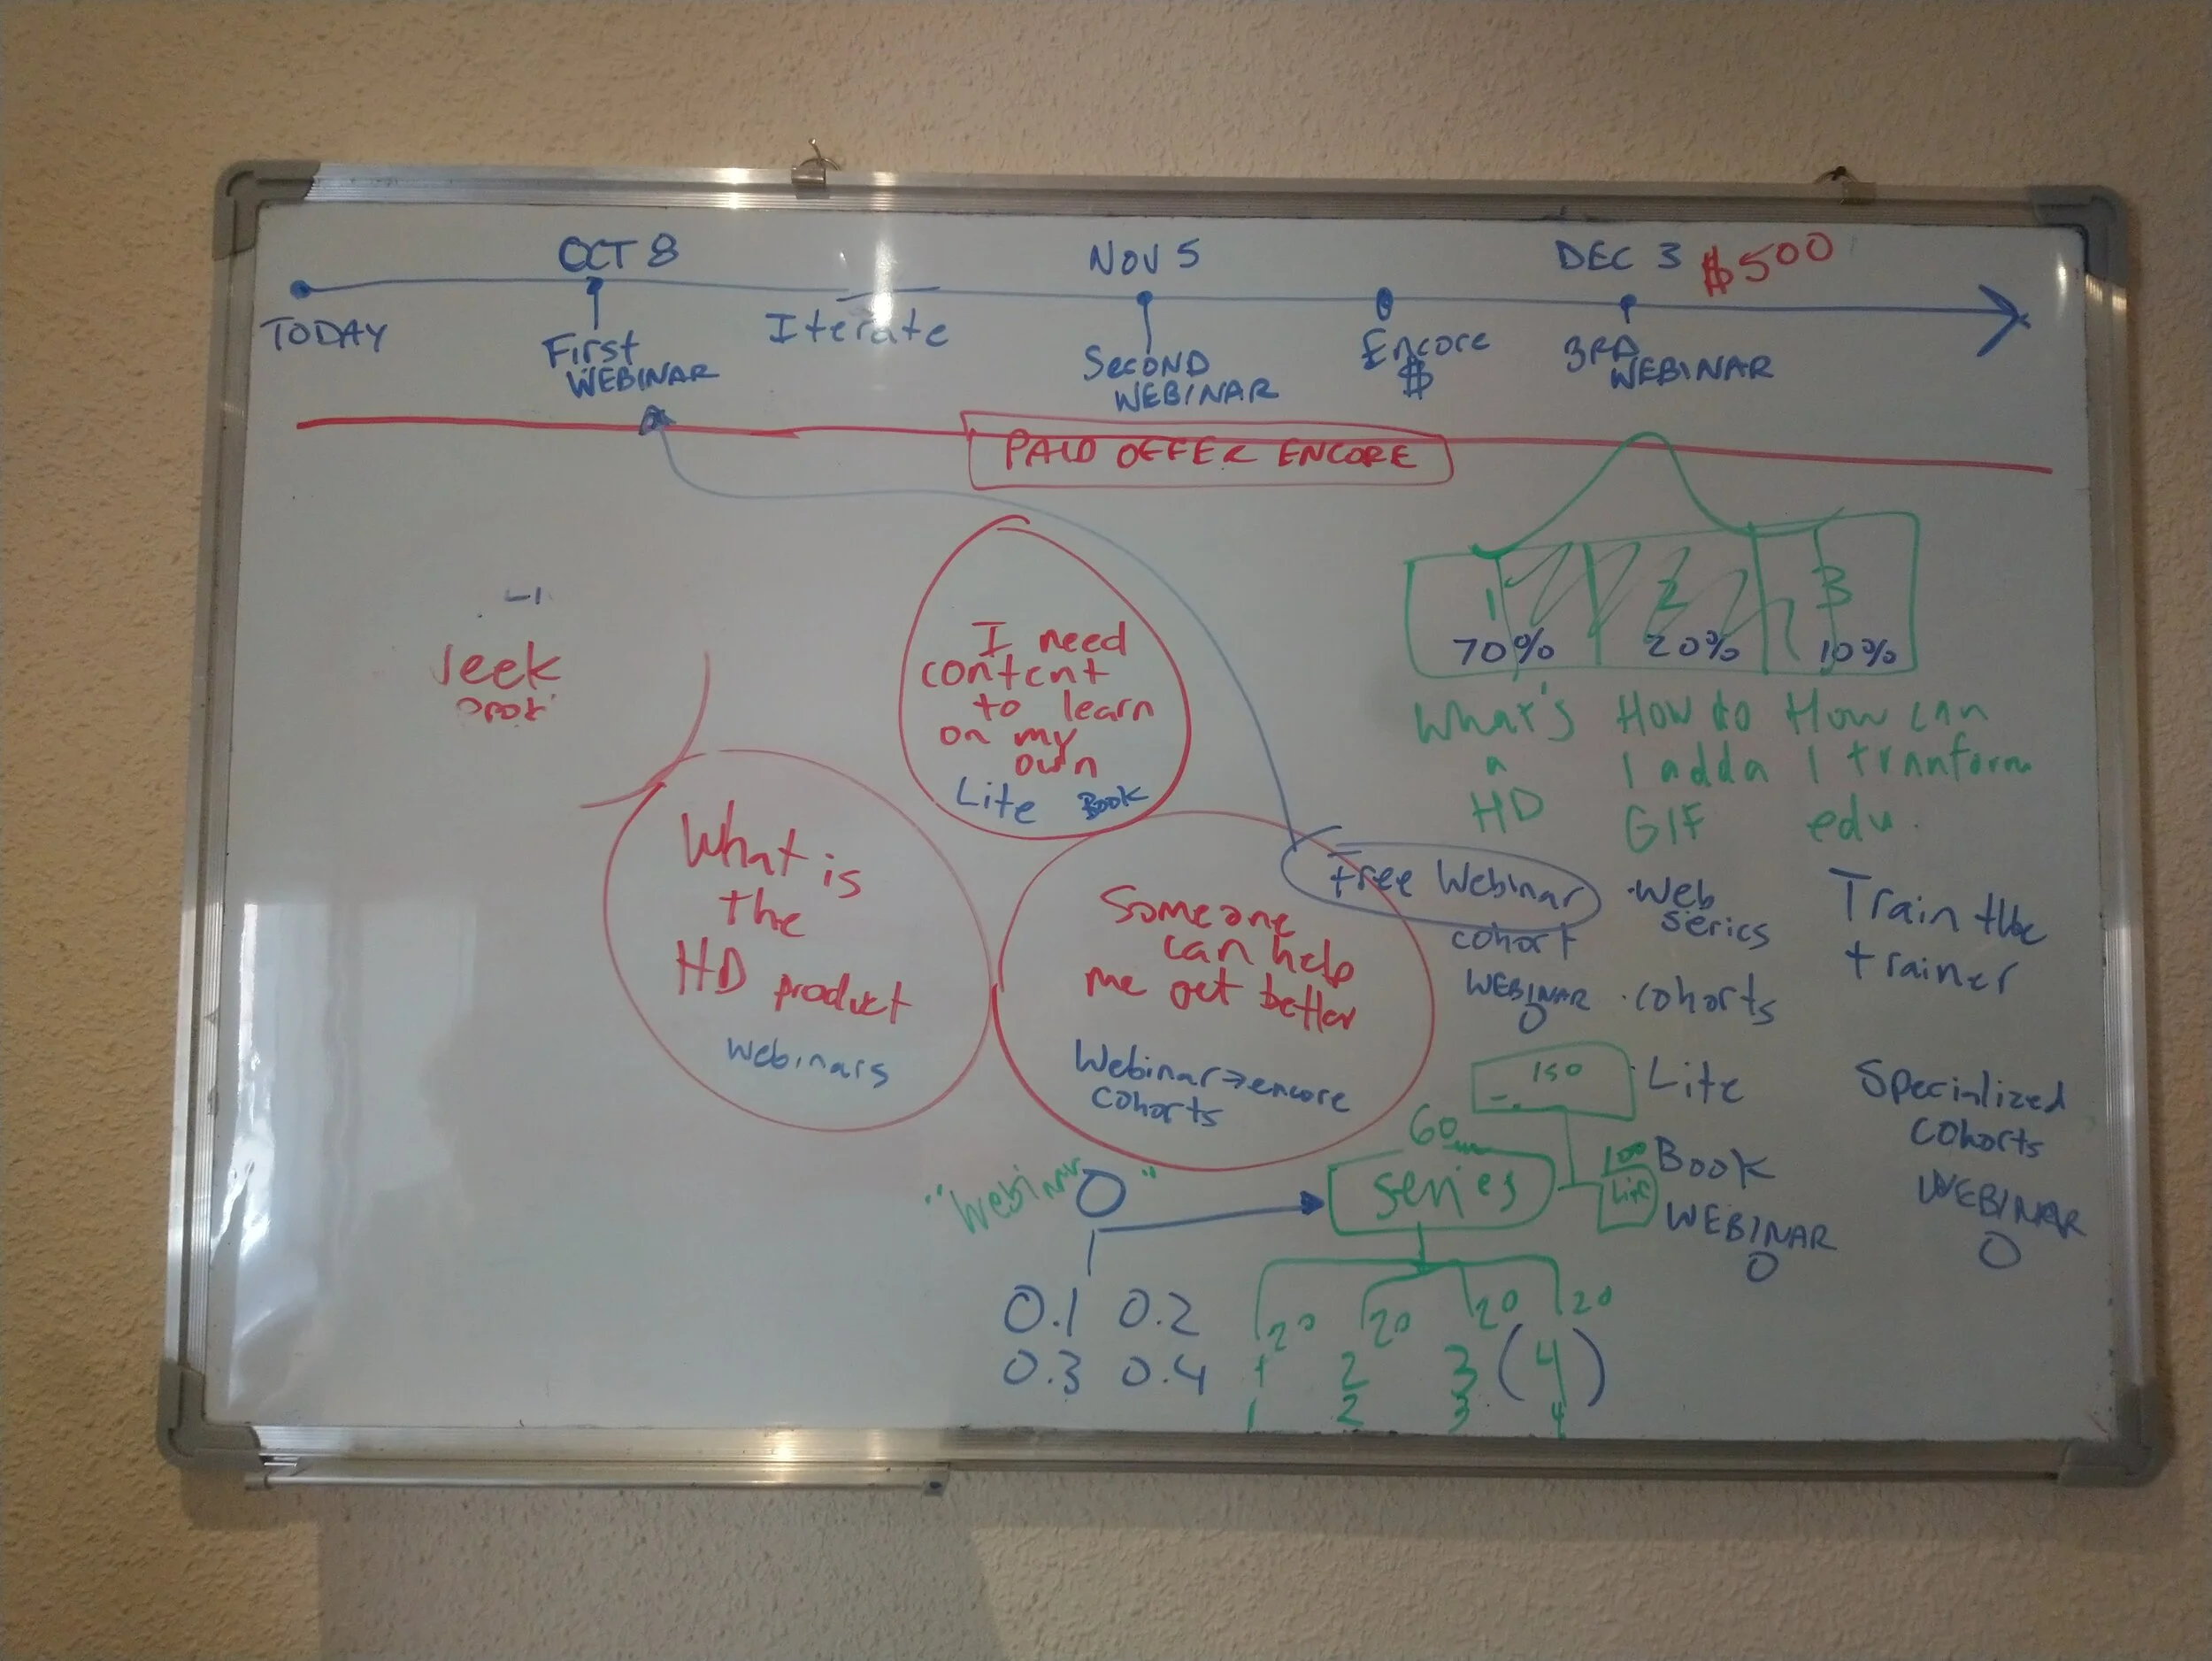 OCT 8
NOV 5
DEC 3 $500
TODAY
First
WEBINAR
Iterate
SECOND
WEBINAR
Encore
$
3RD
WEBINAR
PAID OFFER ENCORE
I need
content
to learn
on my
own
Lite Book
What is
the
HD product
Webinars
Someone
can help
me get better
Webinar → encore
cohorts
1 2 3
70% 20% 10%
What's
a
HD
How to
I add a
GIF
How can
I tranform
edu.
Free Webinar
cohort
WEBINAR
0
· Web
series
· cohorts
· Lite
Book
WEBINAR
0
Train the
trainer
Specialized
cohorts
WEBINAR
0
150
60
100
Lite
"Webinar 0"
series
0.1 0.2
0.3 0.4
20 20 20 20
1 2 3 (4)
1 2 3 4